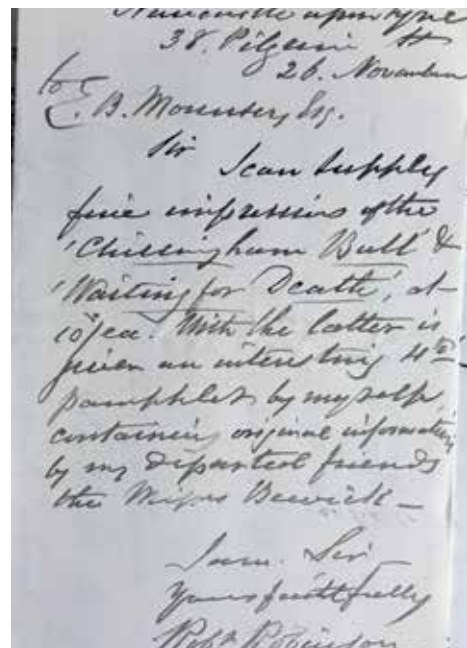 Newcastle upon Tyne
38. Pilgrim St
26. November
to
E. B. Mounsey, Esq.
Sir I can supply
fine impressions of the
'Chillingham Bull' &
'Waiting for Death', at
10/ ea. With the latter is
given an interesting 4to
pamphlet by myself,
containing original information
by my departed friends
the Misses Bewick —
I am. Sir
Yours faithfully
Robt Robinson